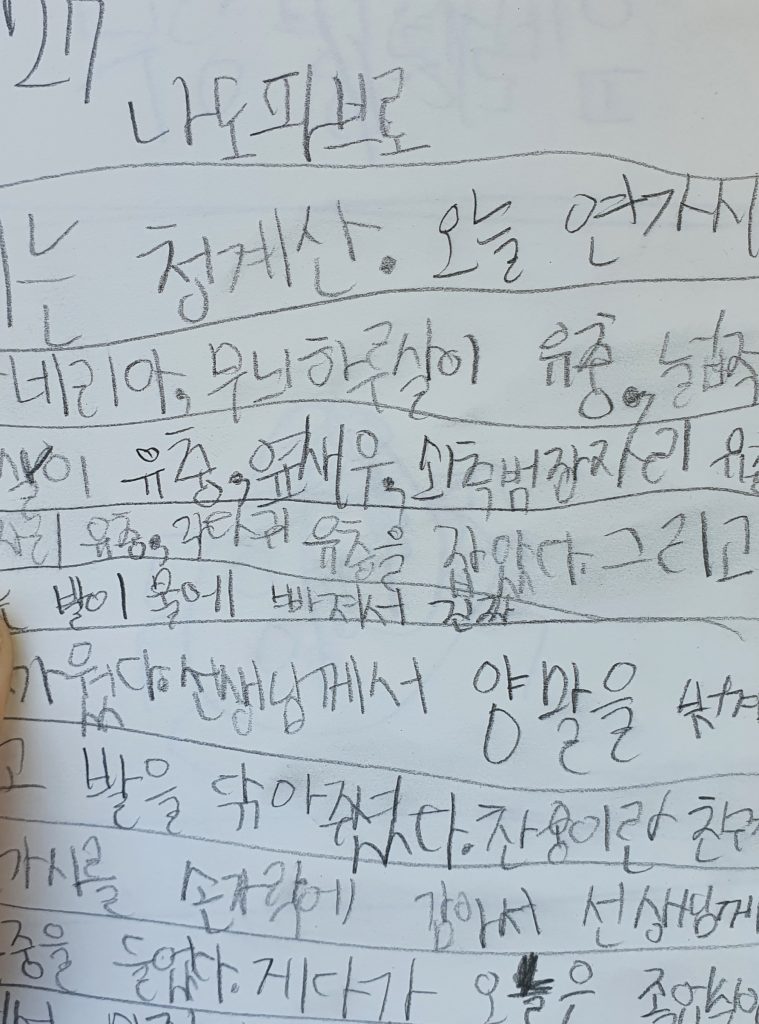 27
나도파브르
는 청계산. 오늘 연가시
네리아, 무늬하루살이 유충, 넓적
살이 유충, 옆새우, 쇠측범잠자리 유충
유충, 각다귀 유충을 잡았다. 그리고
발이 물에 빠져서 진짜
가웠다. 선생님께서 양말을
고 발을 닦아주셨다. 찬용이란 친구
가시를 손가락에 감아서 선생님께
중을 들었다. 게다가 오늘은 졸업식이